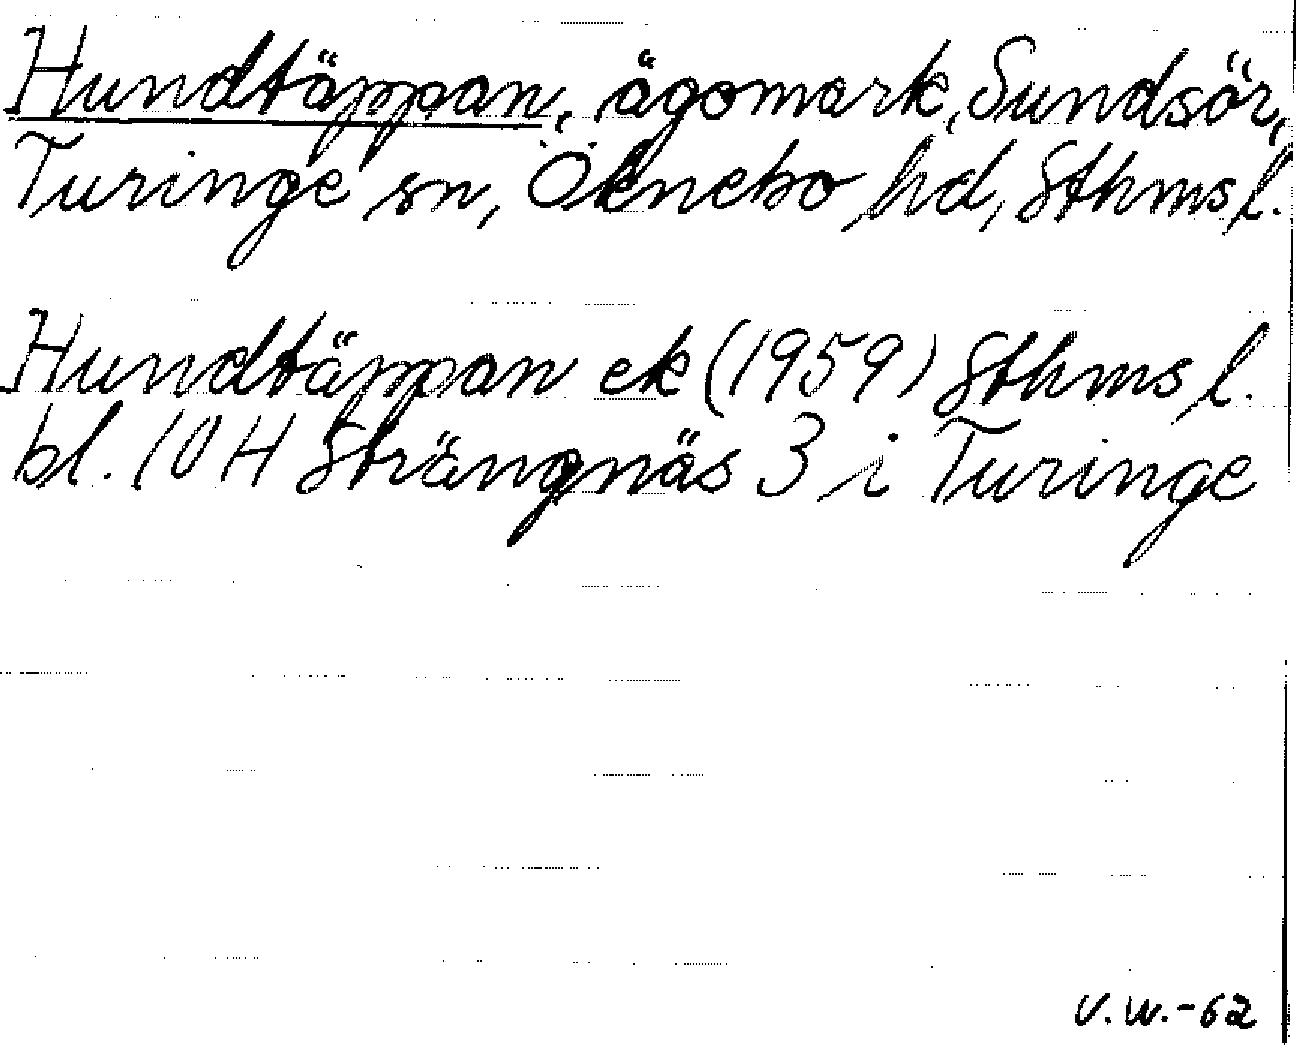 Hundtäppan, ägomark, Sundsör,
Turinge sn, Öknebo hd, Sthms l.
Hundtäppan ek (1959) Sthms l.
bl. 10 H Strängnäs 3 i Turinge
V.W.-62